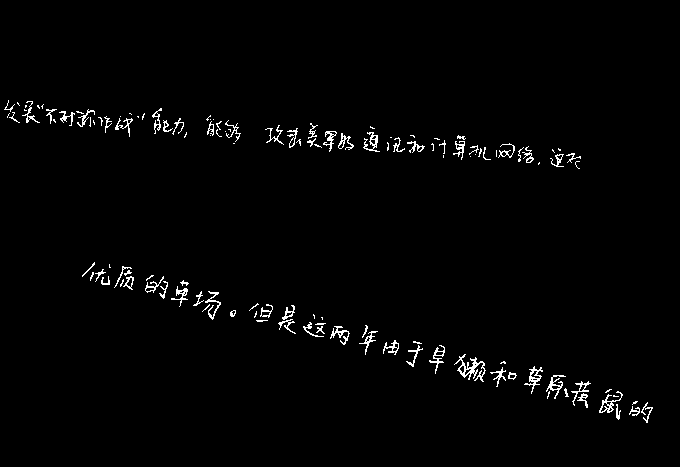 发展“不对称作战”能力,能够 攻击美军的通讯和计算机网络,这很
优质的草场。但是这两年由于旱獭和草原黄鼠的